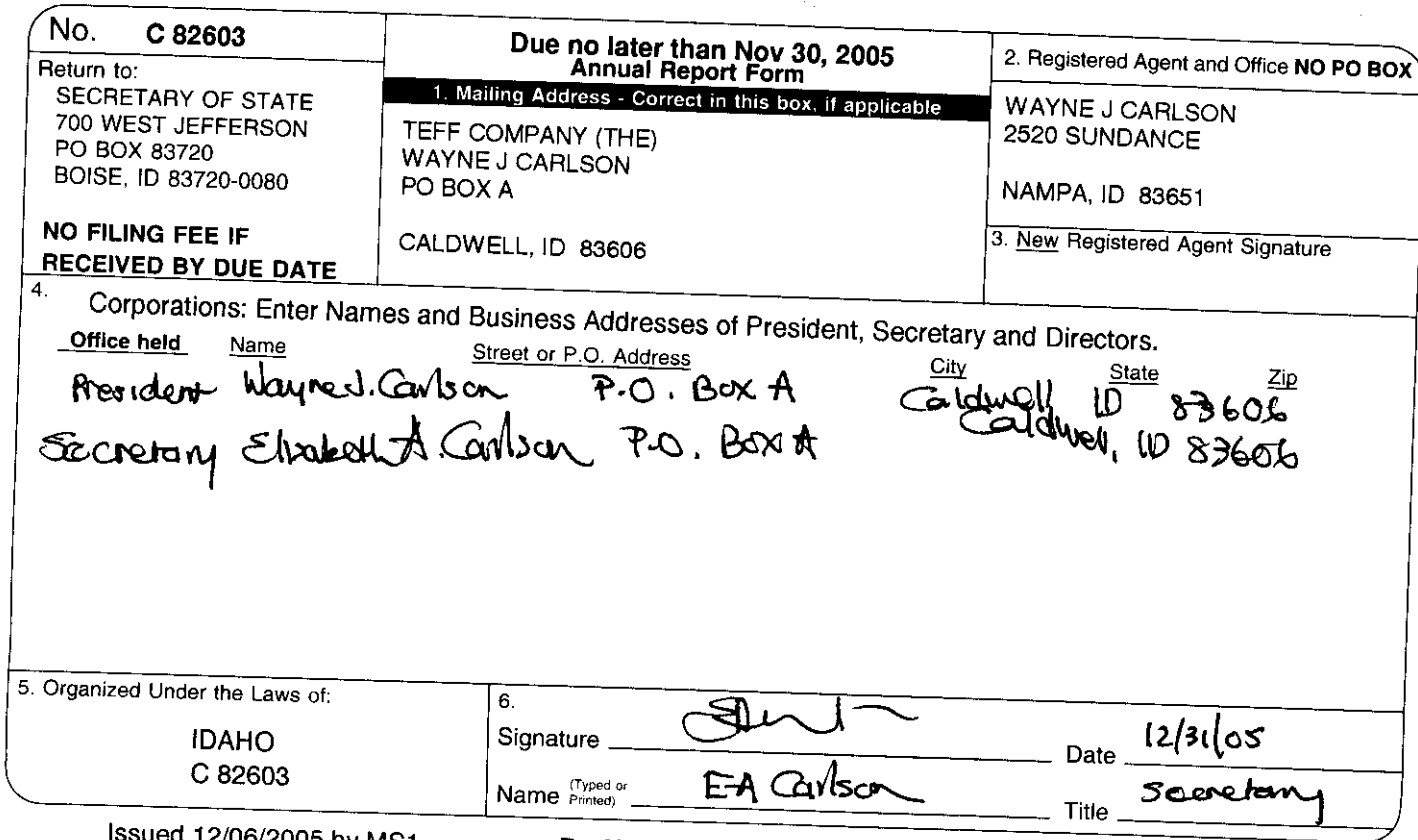 No. C 82603
Return to:
SECRETARY OF STATE
700 WEST JEFFERSON
PO BOX 83720
BOISE, ID 83720-0080
NO FILING FEE IF
RECEIVED BY DUE DATE
Due no later than Nov 30, 2005
Annual Report Form
1. Mailing Address - Correct in this box, if applicable
TEFF COMPANY (THE)
WAYNE J CARLSON
PO BOX A
CALDWELL, ID 83606
2. Registered Agent and Office NO PO BOX
WAYNE J CARLSON
2520 SUNDANCE
NAMPA, ID 83651
3. New Registered Agent Signature
4. Corporations: Enter Names and Business Addresses of President, Secretary and Directors.
Office held Name Street or P.O. Address City State Zip
President Wayne J. Carlson P.O. Box A Caldwell ID 83606
Secretary Elizabeth A. Carlson P.O. Box A Caldwell, ID 83606
5. Organized Under the Laws of:
IDAHO
C 82603
6.
Signature Date 12/31/05
Name (Typed or Printed) E-A Carlson Title secretary
Issued 12/06/2005 by MS1